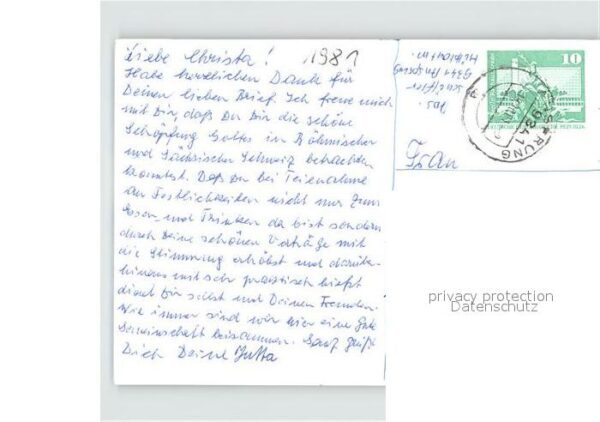 Liebe Christa! 1981
Habe herzlichen Dank für
Deinen lieben Brief. Ich freue mich
mit Dir, daß Du Dir die schöne
Schöpfung Gottes in Böhmischer
und Sächsischer Schweiz betrachten
konntest. Daß Du bei Teilnahme
an Festlichkeiten nicht nur zum
Essen und Trinken da bist sondern
durch Deine schönen Vorträge mit
die Stimmung erhöhst und darüber
hinaus
dienst Dir selbst und Deinen Freunden.
Wie immer sind wir hier eine gute
Gemeinschaft beisammen. Ganz
Dich Deine Jutta
Frau
10
9341
privacy protection
Datenschutz